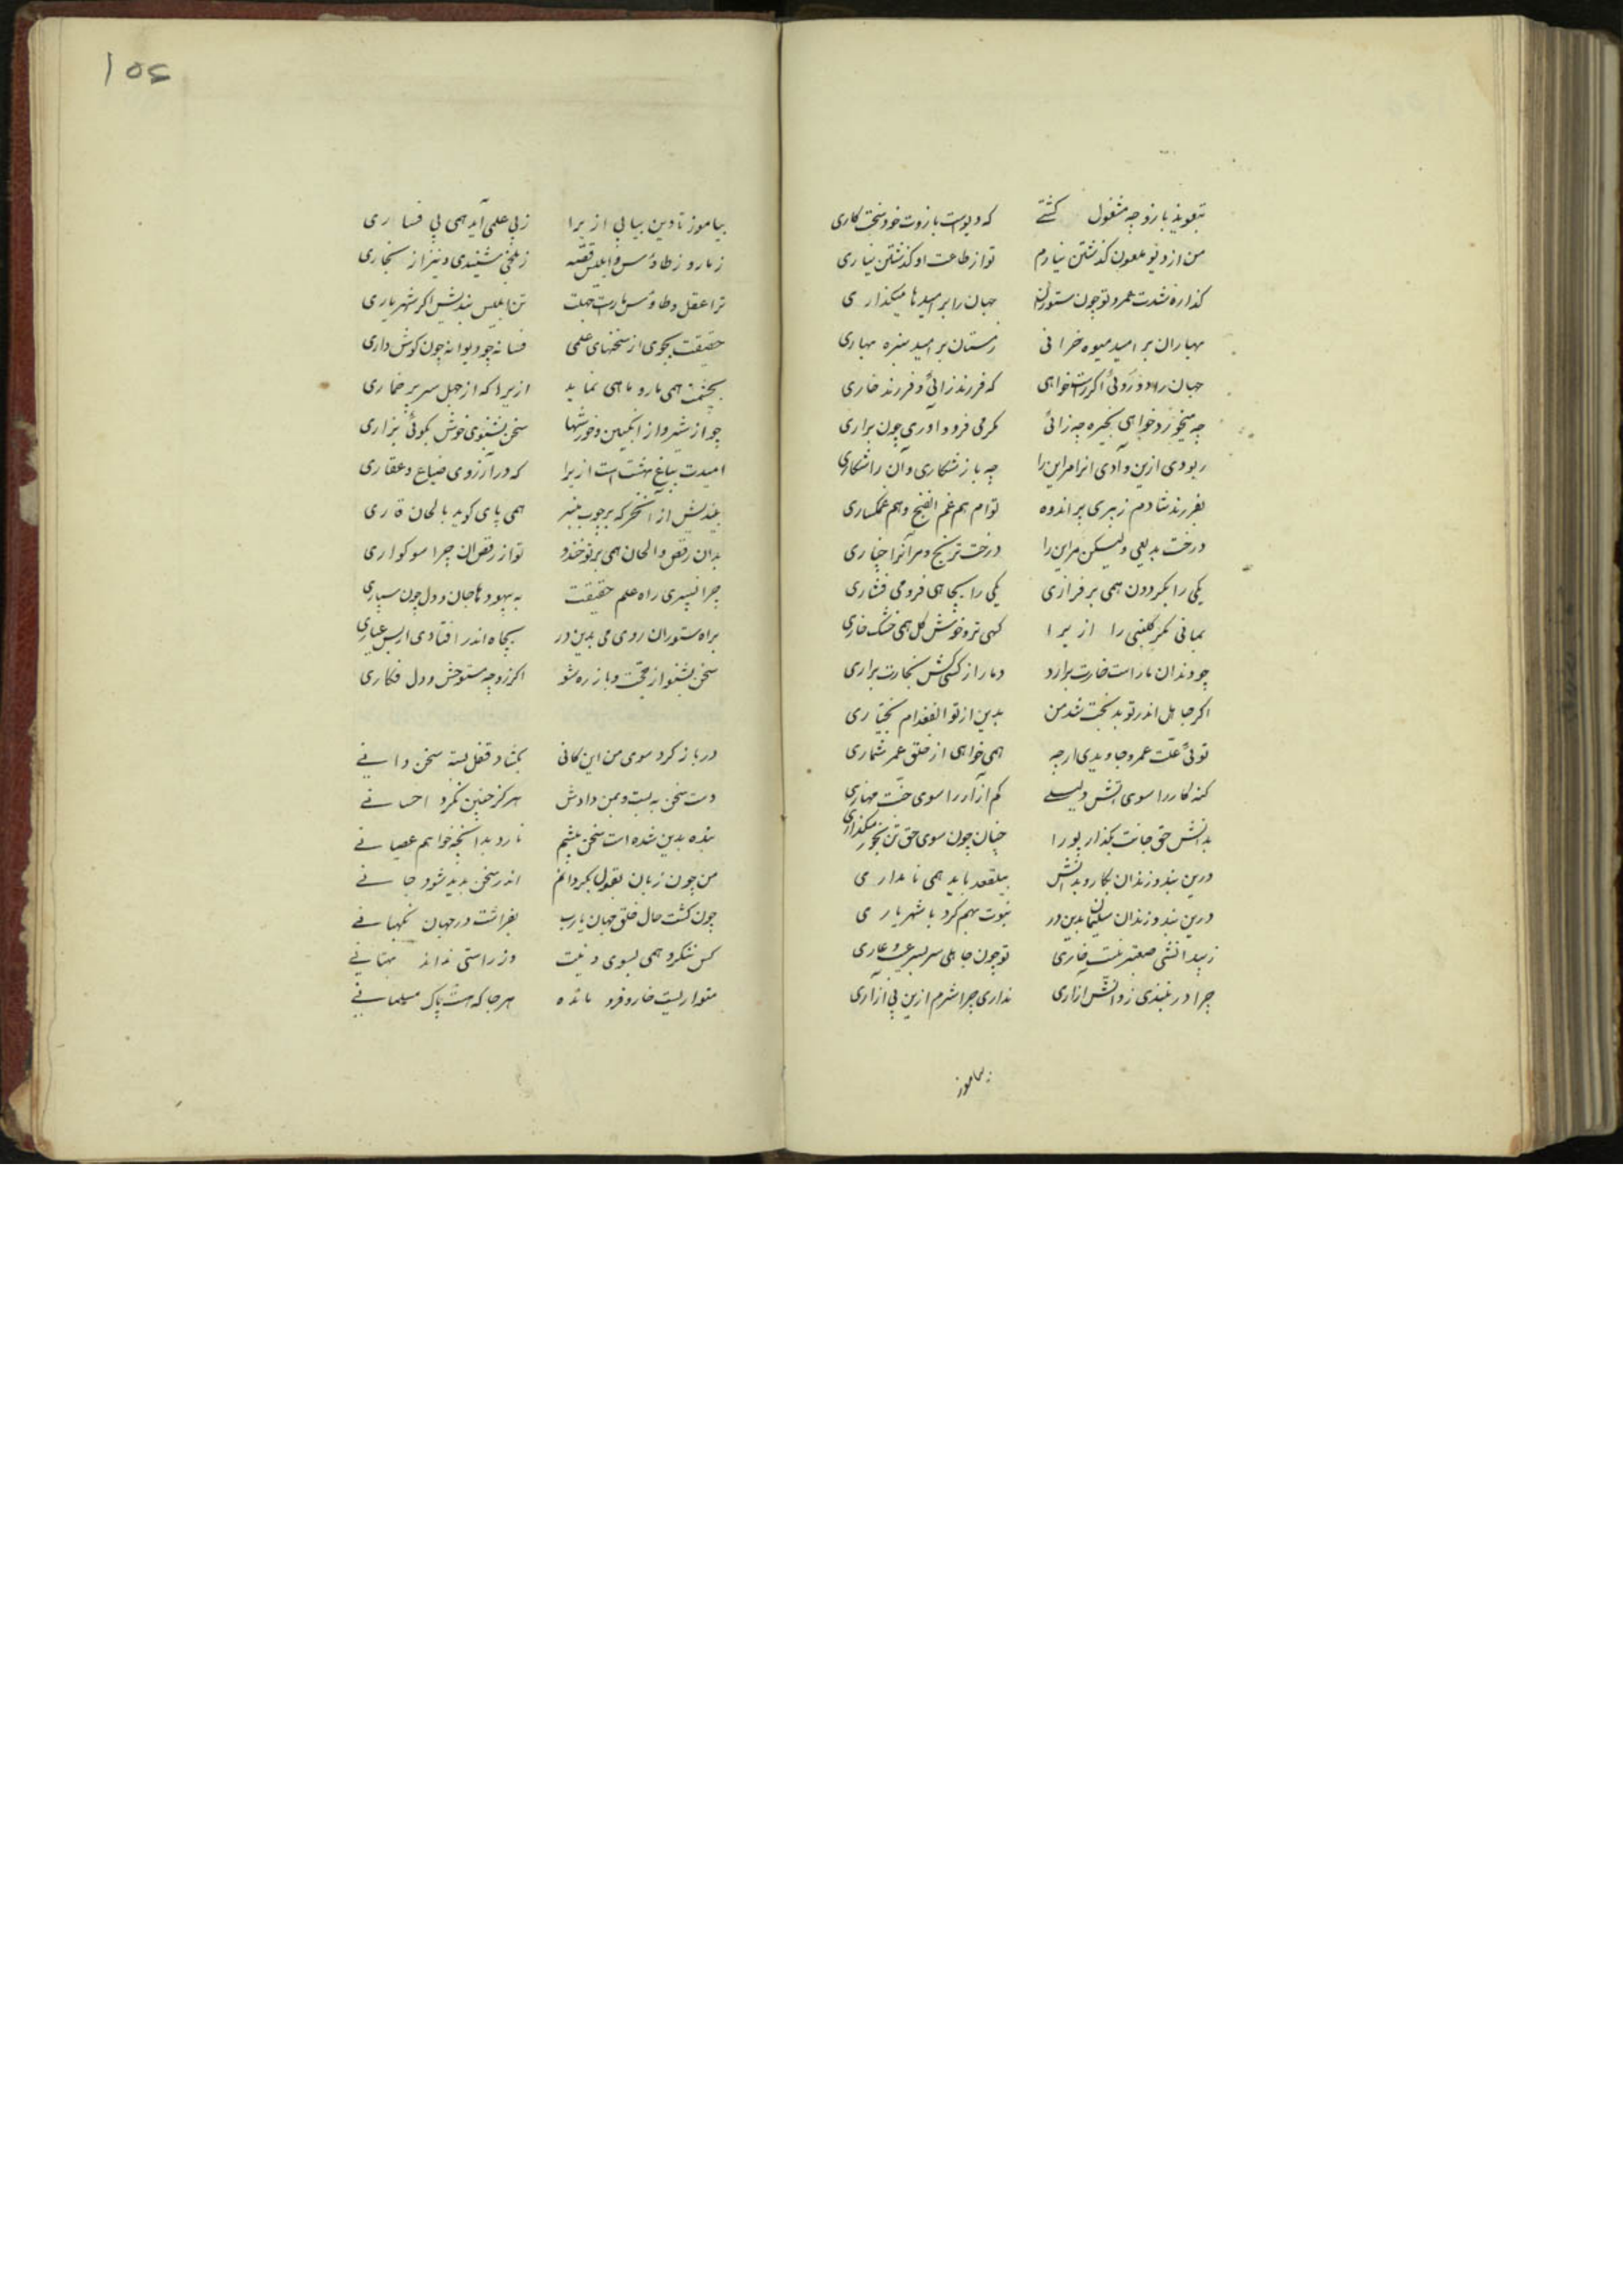 بتعویذ بازو چه مشغول گشتی که دیوست بازوت خود سخت کاری
من از دیو ملعون گذشتن نیارم تو از طاعت او گذشتن نیاری
گذاره شدت عمر و تو چون ستوران جهان را بر امیدها میگذاری
بهاران بر امید میوه خزانی زمستان بر امید سبزه بهاری
جهان را دو روئی اگر راست خواهی که فرزند زائی و فرزند خاری
چه میخورد خواهی بخیره چه زائی مگر می فرود آوری چون براری
ربودی ازین و آدی انرا مراین را چه بازشکاری و آن را شکاری
بفرزند شادم ز پیری بر اندوه توام هم غم الفنج و هم غمگساری
درخت بدیعی ولیکن مراین را درخت ترنج و مر آنرا چناری
یکی را بگردون همی بر فرازی یکی را بچاهی فرو می فشاری
بمانی مگر گلبنی را ازیرا گهی تر و خوش گل همی خشک خاری
چو دندان مار است خارت برارد دمار از کسی کش بخارت براری
اگر جاهل اندر تو بدبخت شد من بدین از تو الفغدام بختیاری
توئی علت عمر و جاویدی ارچه همی خواهی از خلق عمر شماری
گنه کار را سوی آتش دلیلی کم آزار را سوی جنت مهاری
بدانش حق جانت بگذار پورا چنان چون سوی حق تن بخور میگذاری
درین بند و زندان بکار و بدانش بیلفغد باید همی نامداری
درین بند و زندان سلیمان بدین در نبوت بهم کرد با شهریاری
تو چون جاهلی سر بسر عیب و عاری
چرا در نبندی ز دانش ازاری نداری چرا شرم ازین بی ازاری
بیاموز
۱۵۶
بیاموز تا دین بیابی ازیرا ز بی علمی آید همی بی فساری
ز مار و ز طاوس و ابلیس قصه ز بلخی شنیدی و نیز از بخاری
ترا عقل و طاوس و مارت جهلت تن ابلیس بندیش اگر شهریاری
حقیقت بجوی از سخنهای علمی فسانه چو دیوانه چون گوش داری
بچشمت همی مار و ماهی نماید ازیرا که از جهل سر پر خماری
چو از شیر و از انگبین و خورشها سخن بشنوی خوش بگوئی بزاری
امیدت بباغ بهشت است ازیرا که در آرزوی ضیاع و عقاری
بیندیش از آنخر که بر چوب منبر همی پای کوبد بالحان قاری
بدان رقص و الحان همی بر تو خندد تو از رقص آن چرا سوکواری
چرا نسپری راه علم حقیقت به بیهودها جان و دل چون سپاری
براه ستوران روی می بدین در بچاه اندر افتادی از بس عیاری
سخن بشنو از حجت و باز ره شو اگر زو چه مستوحش و دل فکاری
در باز کرد سوی من این کانی بگشاد قفل بسته سخن دانی
دست سخن به بست و بمن دادش هرگز چنین نکرد احسانی
بنده بدین شده است سخن پیشم نارد بدانچه خواهم عصیانی
من چون زبان بقول بگردانم اندر سخن پدید شود جانی
چون گشت حال خلق جهان یارب بفراشت در جهان نگهبانی
کس ننگرد همی بسوی دینت وز راستی نداند بهتانی
متواریست خار و فرو مانده هر جا که هست پاک مسلمانی